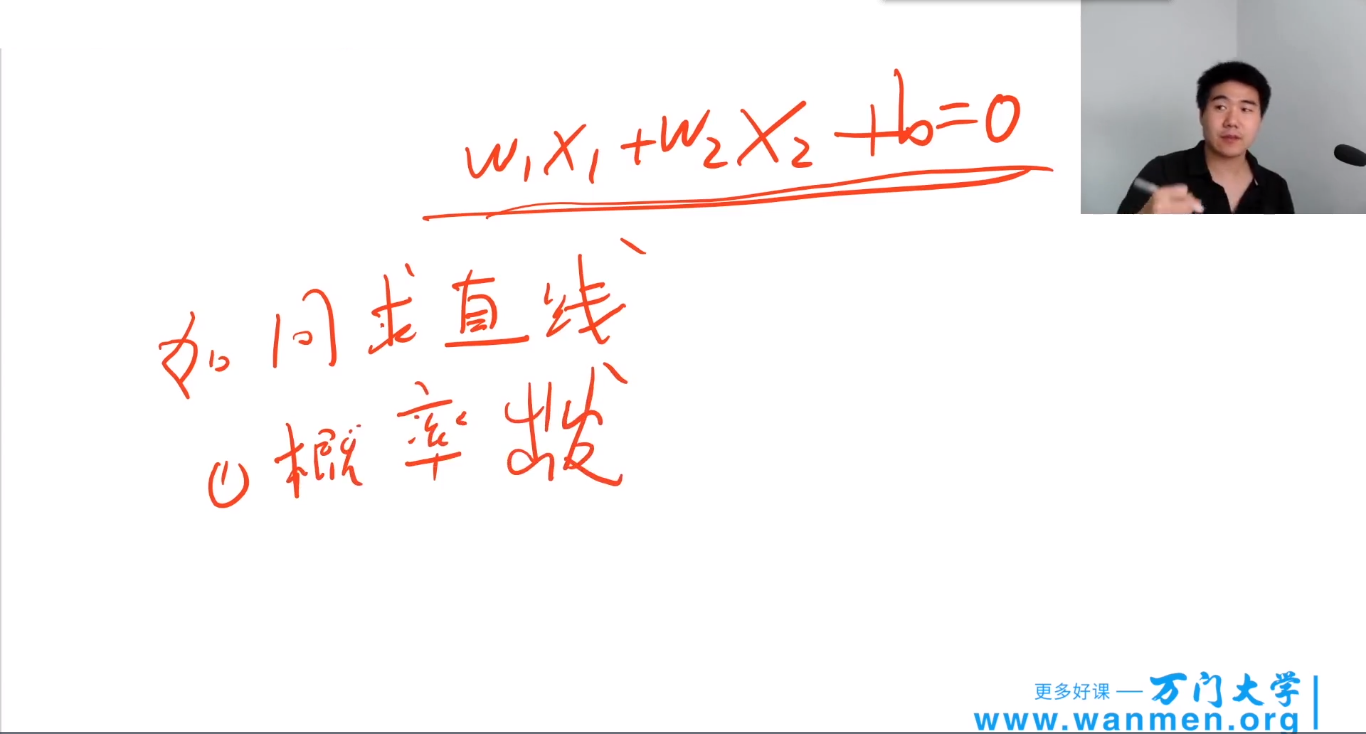 w₁x₁+w₂x₂+b=0
如何求直线
① 概率出发
更多好课 — 万门大学
www.wanmen.org